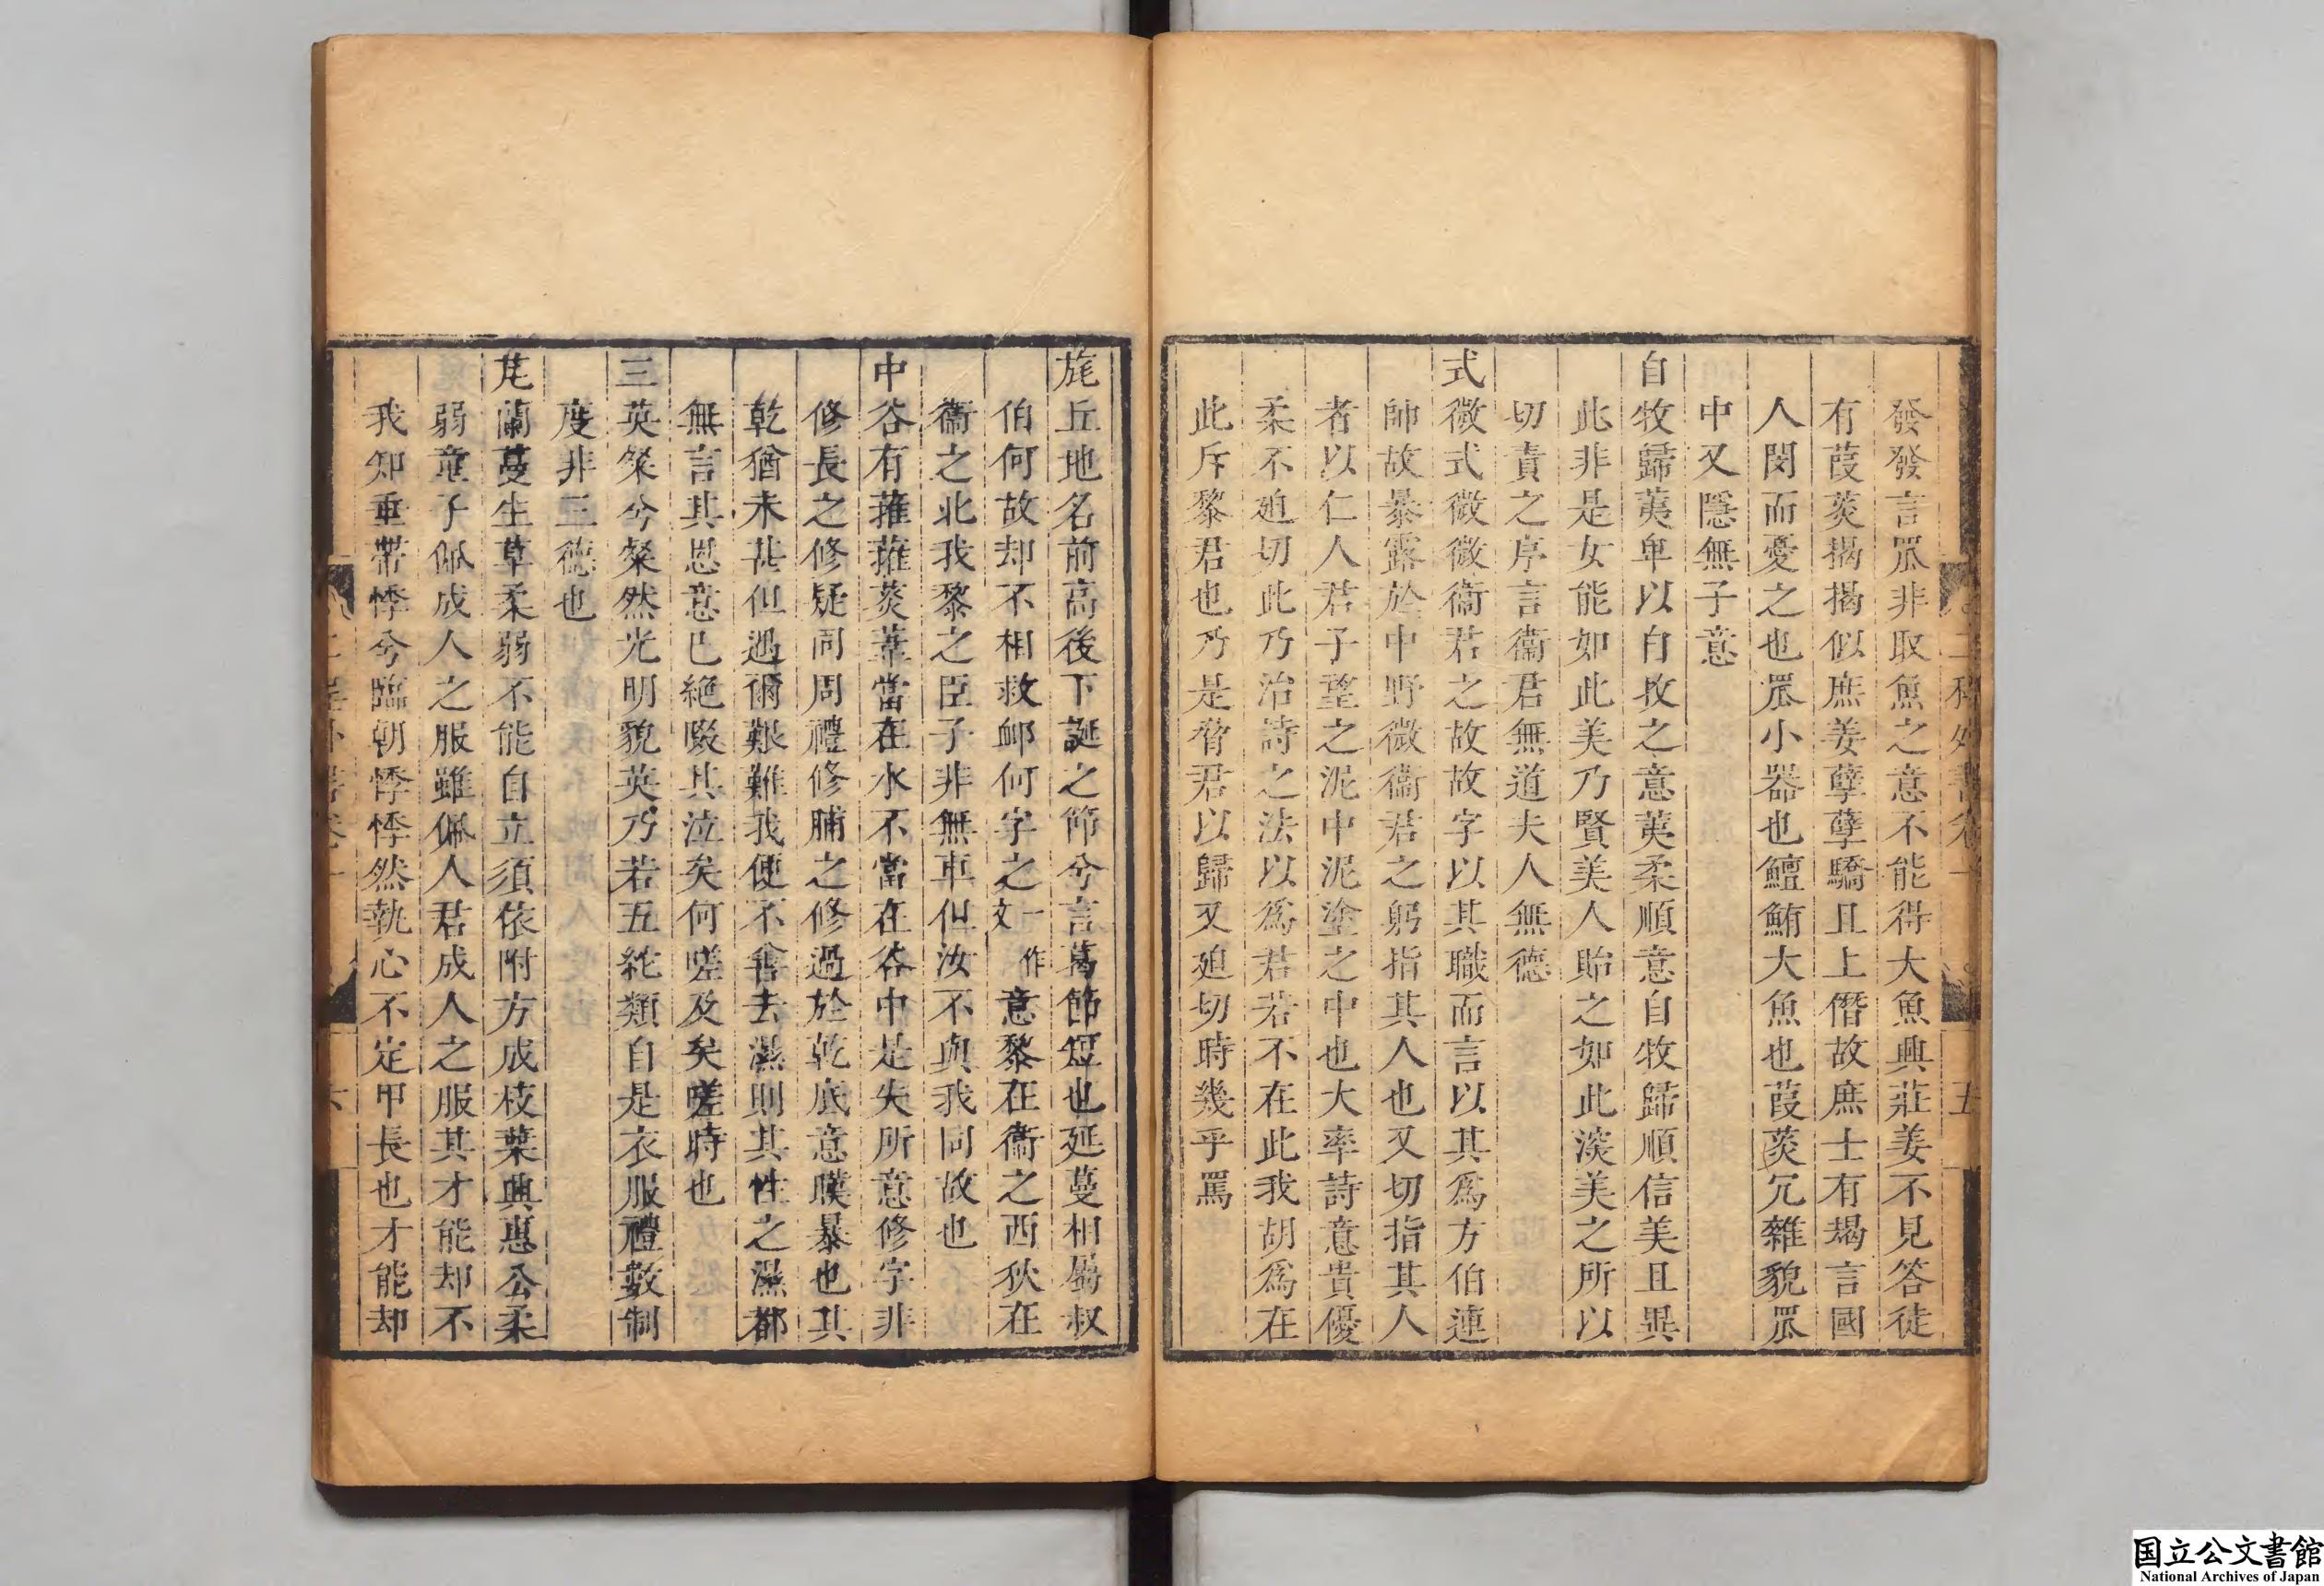 發發言罛非取魚之意不能得大魚興莊姜不見答徒
有葭菼揭揭似庶姜孽孽驕且上僭故庶士有朅言國
人閔而憂之也罛小器也鱣鮪大魚也葭菼冗雜貌罛
中又隱無子意
自牧歸荑卑以自牧之意荑柔順意自牧歸順信美且異
此非是女能如此美乃賢美人貽之如此深美之所以
切責之序言衞君無道夫人無德
式微式微微衞君之故故字以其職而言以其爲方伯連
帥故暴露於中野微衞君之躬指其人也又切指其人
者以仁人君子望之泥中泥塗之中也大率詩意貴優
柔不廹切此乃治詩之法以爲君若不在此我胡爲在
此斥黎君也乃是脅君以歸又廹切時幾乎罵
旄丘地名前高後下誕之節兮言葛節短也延蔓相屬叔
伯何故却不相救衈何字之一作文意黎在衞之西狄在
衞之北我黎之臣子非無車但汝不與我同故也
中谷有蓷蓷菼萑當在水不當在谷中是失所意修字非
修長之修疑同周禮修脯之修過於乾底意暵暴也其
乾猶未甚但遇爾艱難我便不會去濕則其性之濕都
無言其恩意已絕啜其泣矣何嗟及矣嗟時也
三英粲兮粲然光明貌英乃若五紽類自是衣服禮數制
度非三德也
芄蘭蔓生草柔弱不能自立須依附方成枝葉興惠公柔
弱童子佩成人之服雖佩人君成人之服其才能却不
我知垂帶悸兮臨朝悸悸然執心不定甲長也才能却
国立公文書館
National Archives of Japan